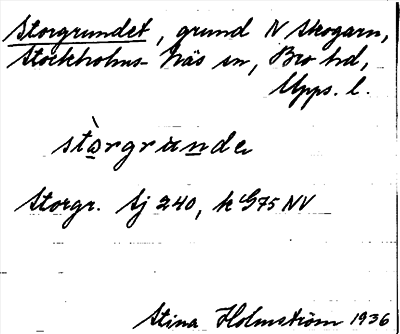 Storgrundet, grund N Skogarn,
Stockholms-Näs sn, Bro hd,
Upps. l.
stòrgrunde
Storgr. Sj 240, k G75 NV
Stina Holmström 1936